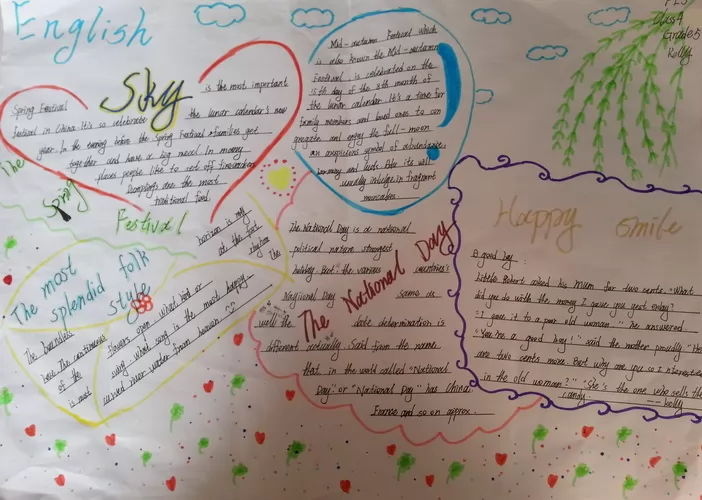 English
PES
Class4
Grade5
Kelly
Sky
Spring Festival is the most important
festival in China It's so celebrate the lunar calendar's new
year. In the evening before the Spring Festival families get
together and have a big meal In many
places people like to set off firecrackers
Dumplings are the most
traditional food
The
Spring
Festival
Mid-autumn Festival which
is also known the Mid-autumn
Festival is celebrated on the
15th day of the 8th month of
the lunar calendar. It's a time for
family members and loved ones to con
gregate and enjoy the full-moon
an auspicious symbol of abundance,
harmony and luck. Adults will
usually indulge in fragrant
mooncakes
The most
splendid folk
style
The
of the
is most
flowers open what bird or
sing what song is the most happy
river water from heaven
horizon is my
rhythm The
The National Day
The National Day is a national
political nature strongest
holiday But the various countries'
National Day same as
well the date determination is
different actually. Said from the name
that in the world called "National
Day" or "National Day" has China,
France and so on approx.
Happy smile
A good boy
Little Robert asked his mum for two cents. "What
did you do with the money I gave you yesterday?"
"I gave it to a poor old woman" he answered
"You're a good boy!" said the mother proudly "He
are two cents more. But why are you so interested
in the old woman?" "She's the one who sells the
candy.
--- Kelly